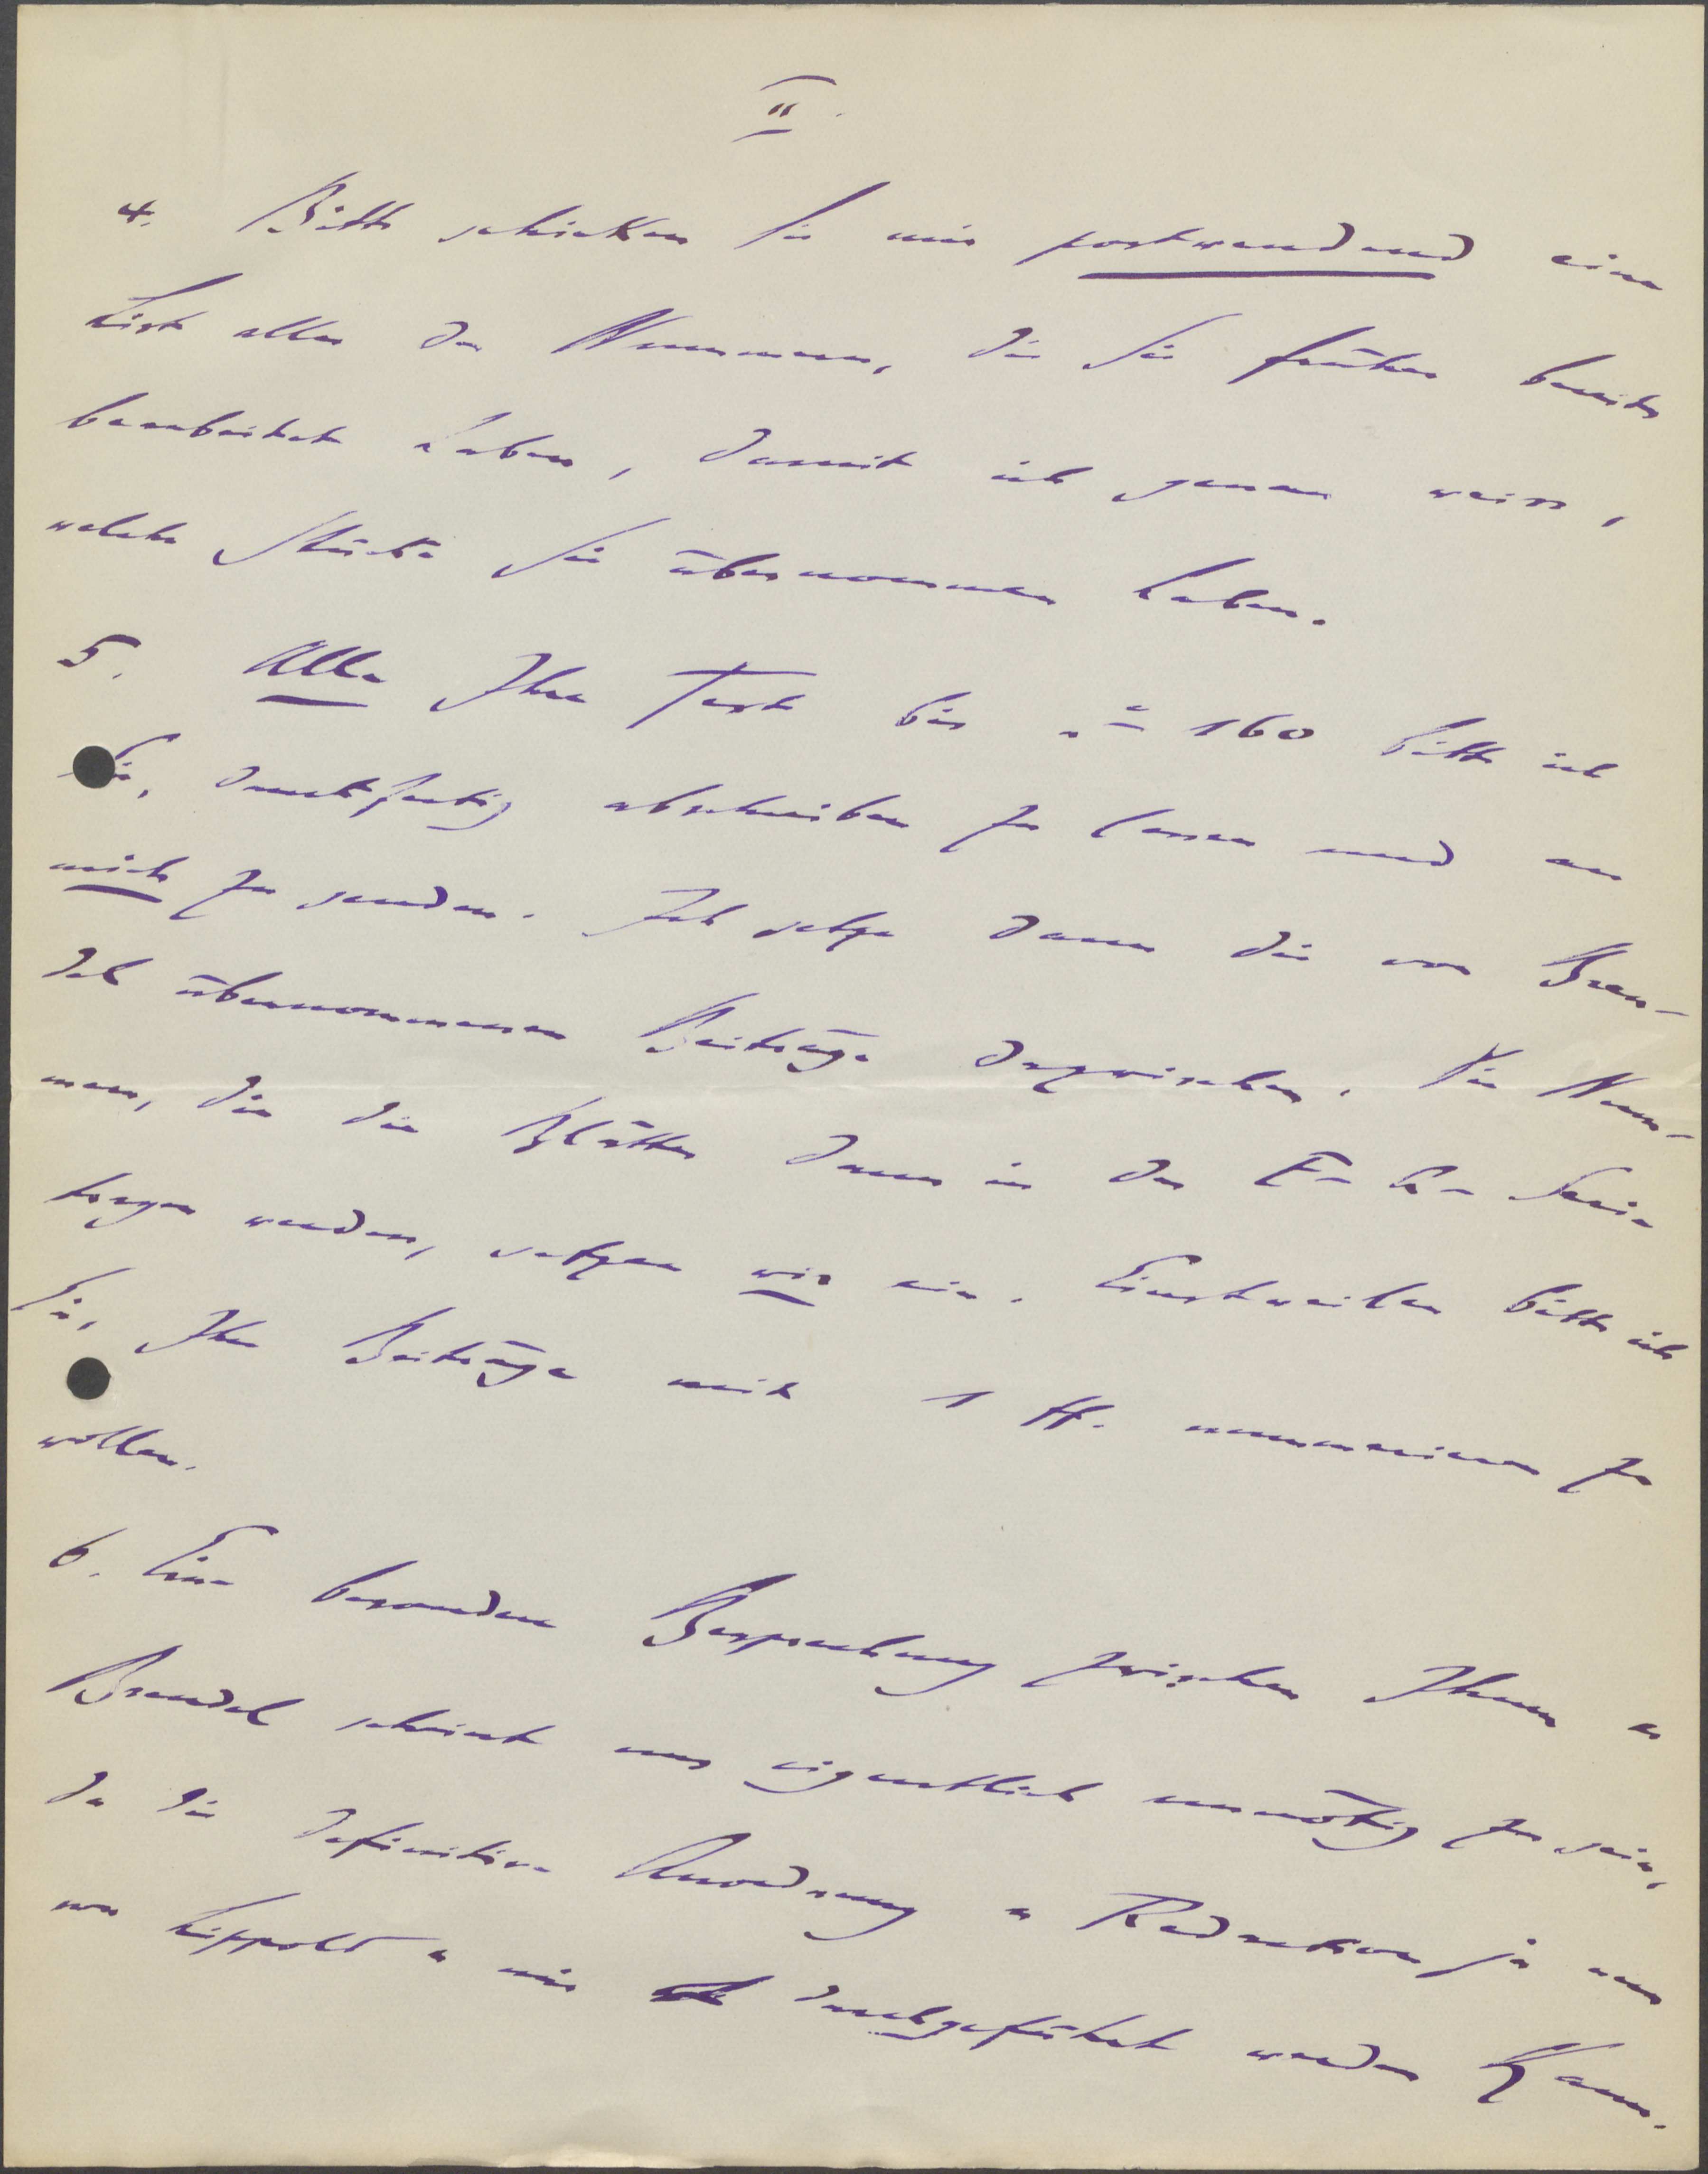 II.
4. Bitte schicken Sie mir postwendend eine
Liste aller der Nummern, die Sie früher bereits
bearbeitet haben, damit ich genau weiss,
welche Stücke Sie übernommen haben.
5. Alle Ihre Texte bis n° 160 bitte ich
Sie, druckfertig abschreiben zu lassen und an
mich zu senden. Ich setze dann die von Bren-
del übernommenen Beiträge dazwischen. Die Num-
mern, die die Blätter dann in der E-A-Serie
tragen werden, setzen wir ein. Einstweilen bitte ich
Sie, Ihre Beiträge mit 1 ff. nummerieren zu
wollen.
6. Eine besondere Besprechung zwischen Ihnen u
Brendel scheint uns eigentlich unnötig zu sein,
da die definitive Anordnung u Redaktion ja nur
von Lippold u mir durchgeführt werden kann.